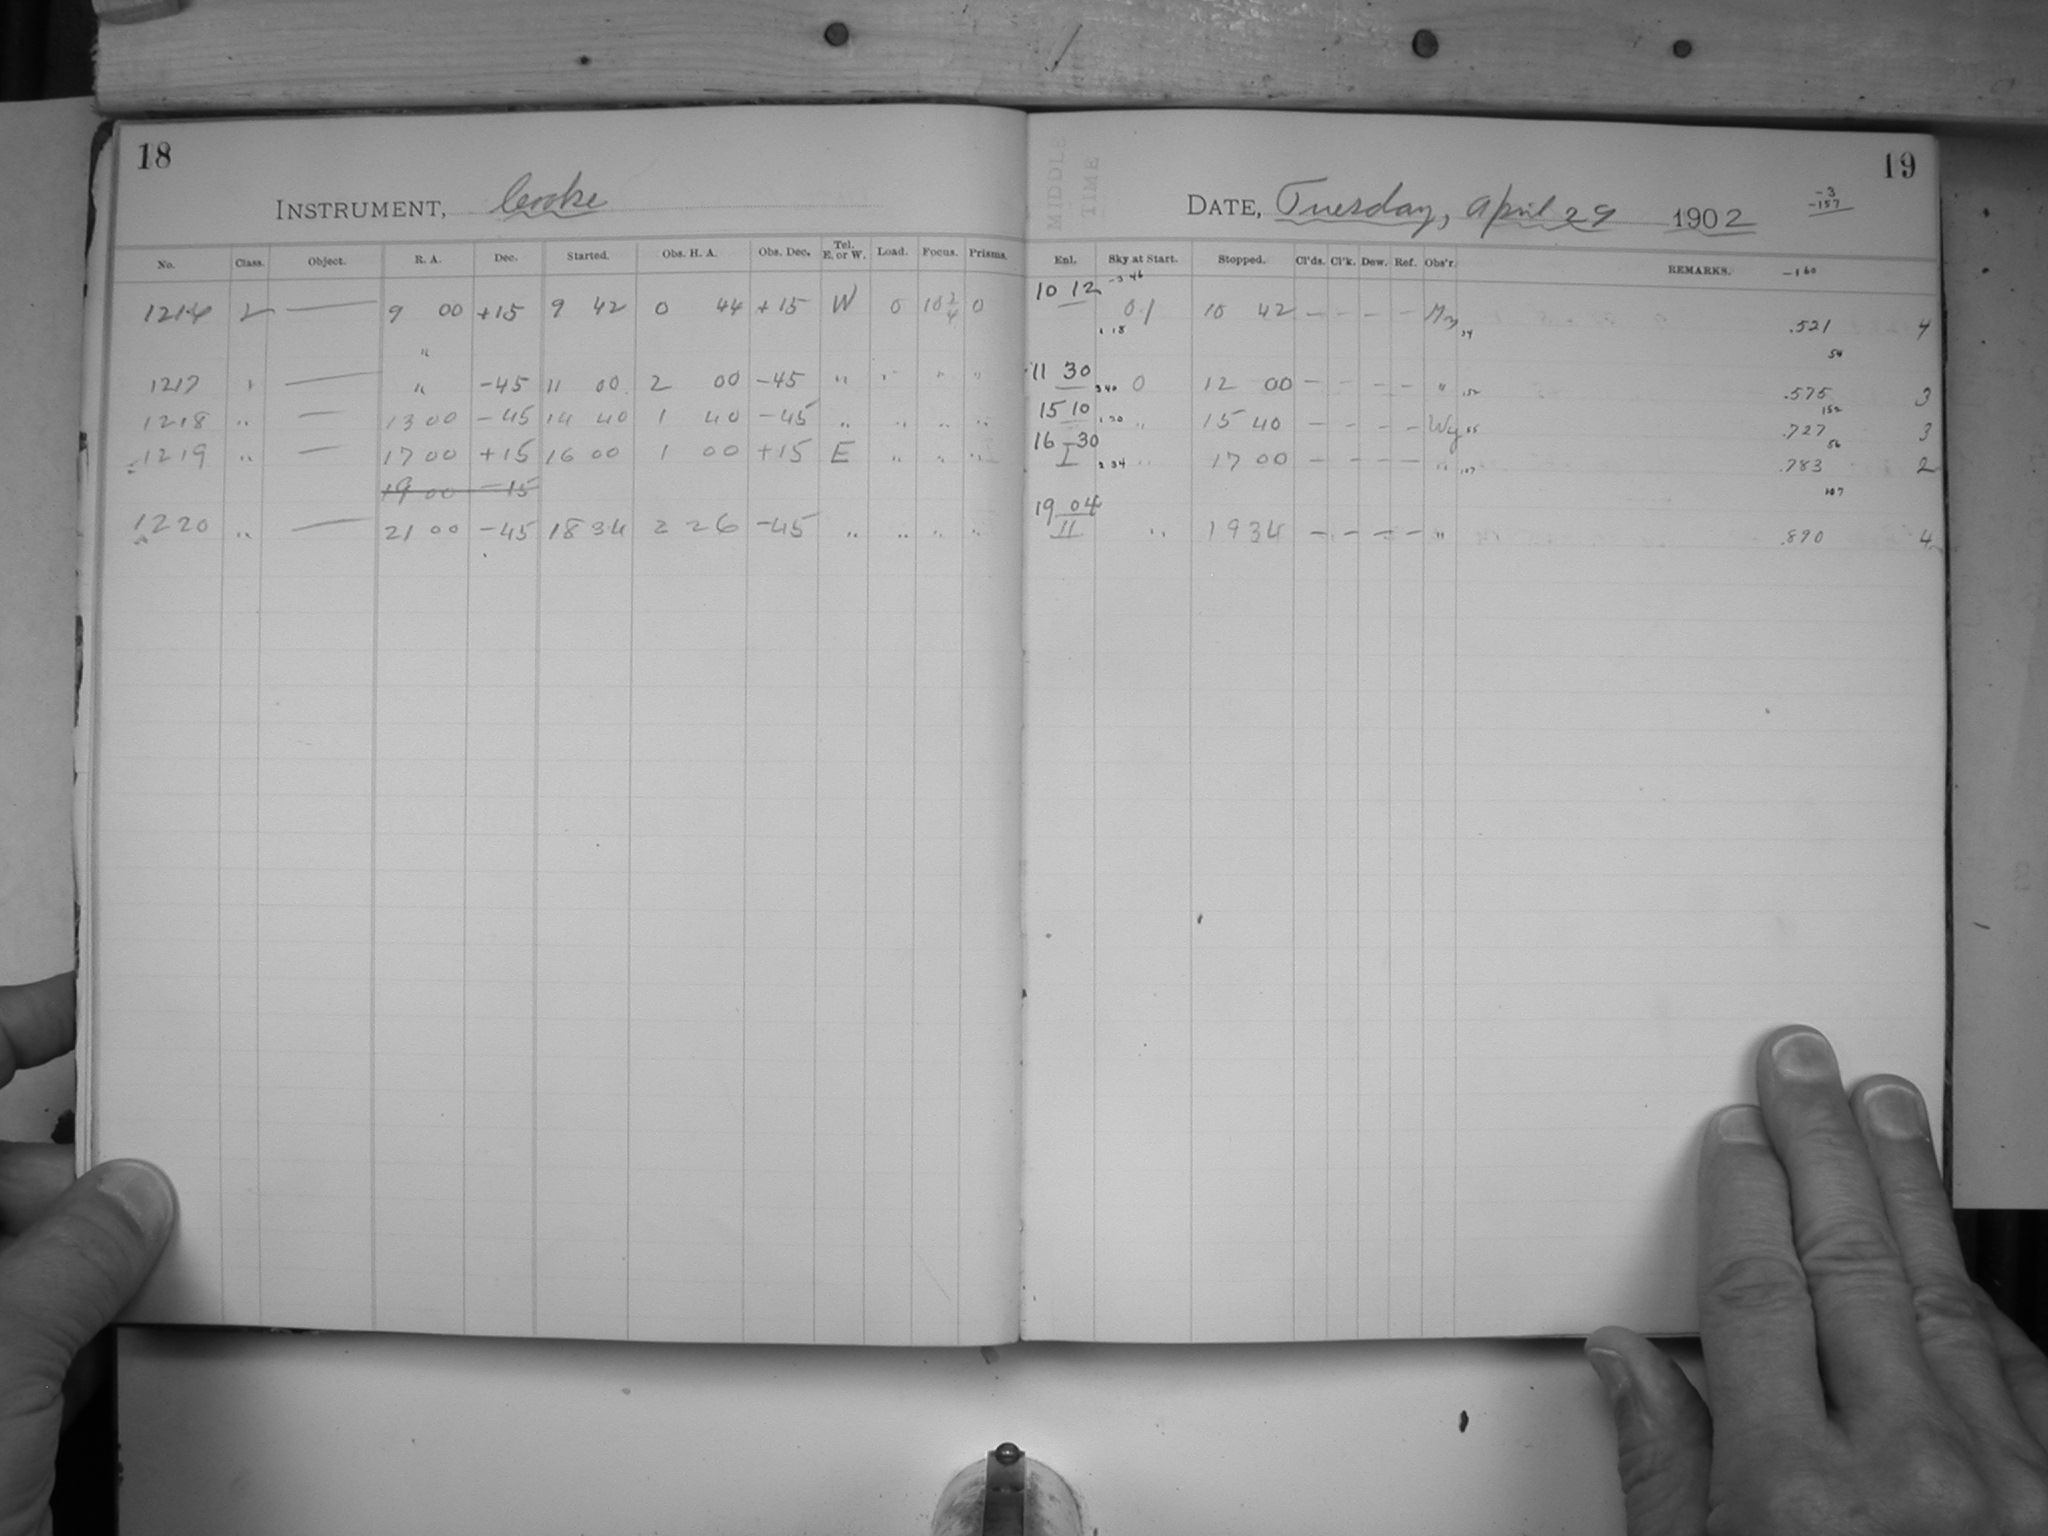 18
INSTRUMENT, Cooke
No. Class. Object. R. A. Dec. Started. Obs. H. A. Obs. Dec. Tel. E. or W. Load. Focus. Prisms.
1214 2 — 9 00 +15 9 42 0 44 +15 W 0 10 2/4 0
"
1217 " — " -45 11 00 2 00 -45 " " " "
1218 " — 13 00 -45 14 40 1 40 -45 " " " "
1219 " — 17 00 +15 16 00 1 00 +15 E " " "
19 00 -15
1220 " — 21 00 -45 18 34 2 26 -45 " " " "
19
MIDDLE TIME
DATE, Tuesday, April 29 1902
-3
-157
-160
Enl. Sky at Start. Stopped. Cl'ds. Cl'k. Dew. Ref. Obs'r. REMARKS.
10 12 -3 46 01 10 42 — — — — .521 4
1 18 54 54
11 30 0 12 00 — — — — " .575 3
3 40 152 152
15 10 " 15 40 — — — — Wy .727 3
1 20 56 56
16 30 I " 17 00 — — — — " .783 2
2 34 107 107
19 04 II " 19 34 — — — — " .890 4